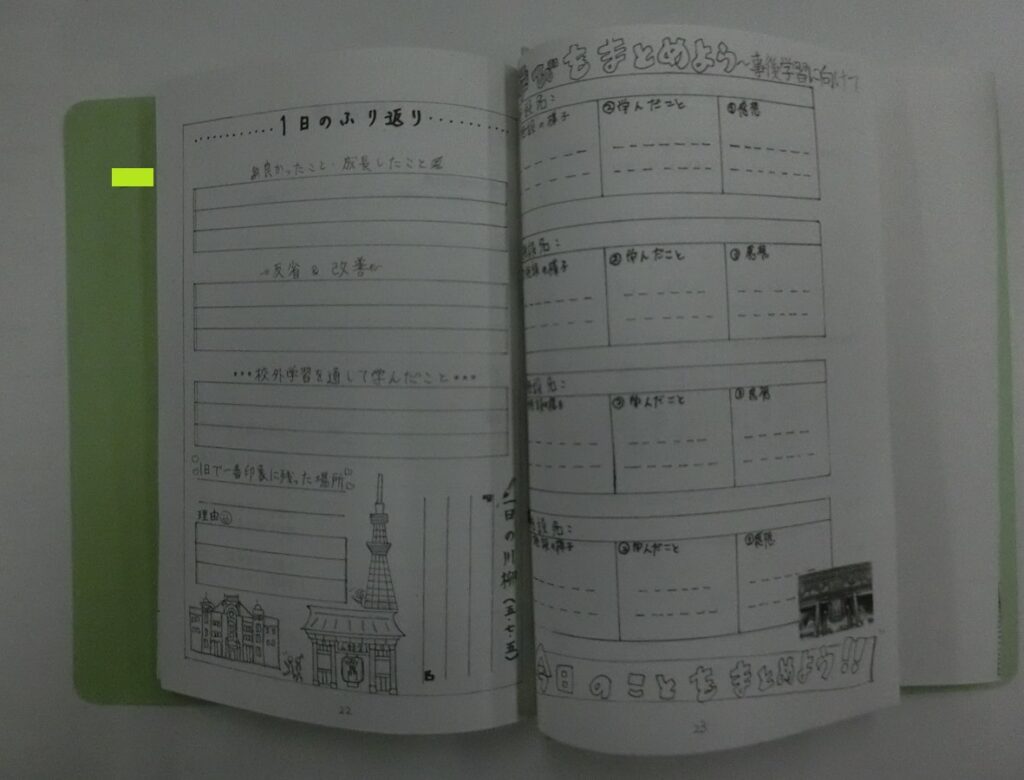 1日のふり返り
良かったこと・成長したこと
反省&改善
校外学習を通して学んだこと
1日で一番印象に残った場所
理由
一日の川柳(五・七・五)
22
もまとめよう~事後学習に向けて
②学んだこと
③感想
②学んだこと
③感想
②学んだこと
③感想
②学んだこと
③感想
今日のこともまとめよう!!
23